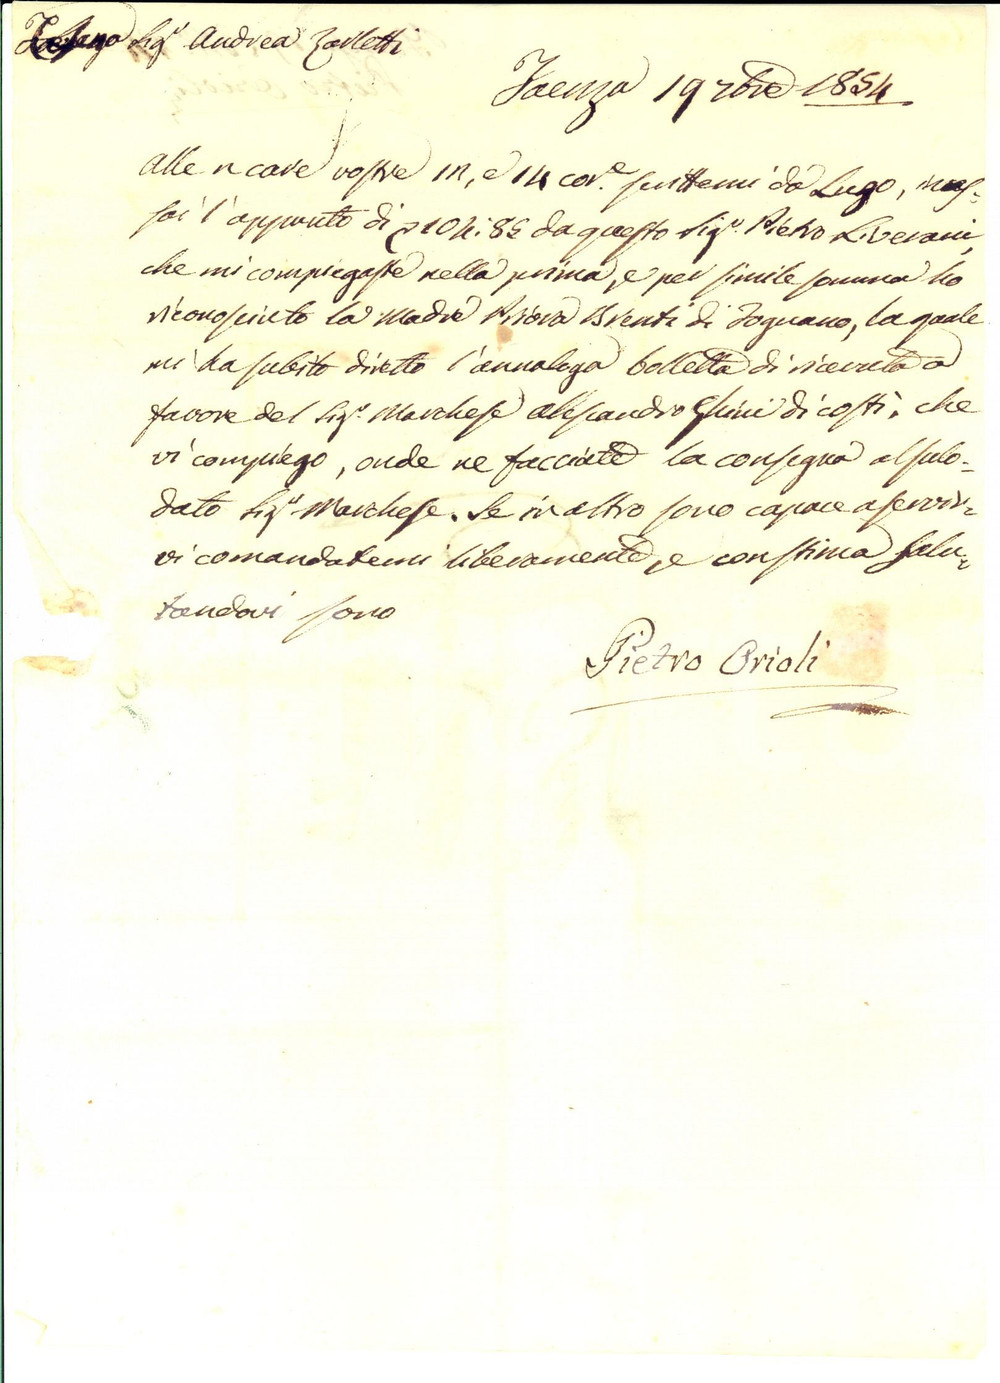 Sig.r Andrea Zarletti
Faenza 19 7bre 1854
Alle care vostre 12, e 14 cor.e scrittemi da Lugo, incas-
sai l'appunto di 104:85 da questo Sig.r Pietro Liverani,
che mi compiegaste nella prima, e per simile somma ho
riconosciuto la Madre Priora Brenti di Fognano, la quale
mi ha subito diretto l'annaloga bolletta di ricevuta a
favore del Sig.r Marchese Alessandro Ghini di costì, che
vi compiego, onde ne facciate la consegna al sulo-
dato Sig.r Marchese. Se in altro sono capace a servir-
vi comandatemi liberamente, e con stima salu-
tandovi sono
Pietro Orioli